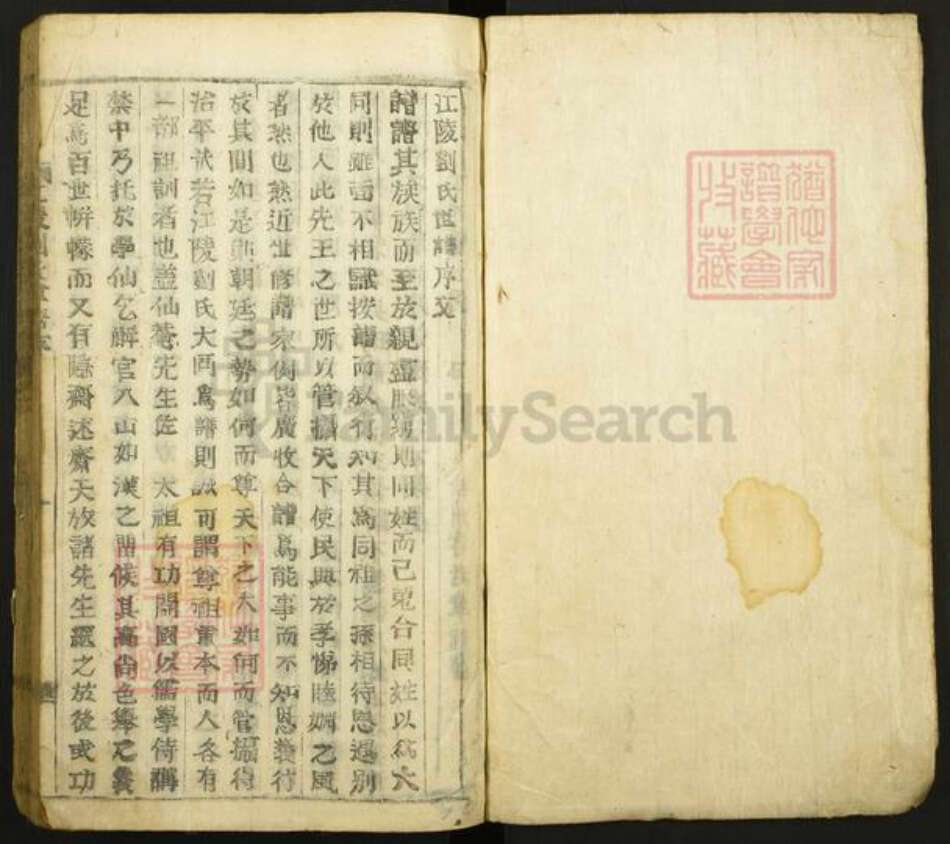 江陵劉氏世譜序文
譜譜其族族而至於親盡服窮則同姓而已蒐合同姓以爲大
同則雖面不相識按譜而叙行知其爲同祖之孫相待恩遇別
於他人此先王之世所以管攝天下使民興於孝悌睦婣之風
者然也然近世修譜家例皆廣收合譜爲能事而不知恩義行
於其間如是則朝廷之勢如何而尊天下之大如何而管攝得
治平哉若江陵劉氏大同爲譜則誠可謂尊祖重本而人各有
一部祖訓者也盖仙菴先生佐 太祖有功開國以儒學侍講
禁中乃托於學仙乞解官入山如漢之留侯其高尙色擧之義
足爲百世帡幪而又有 齋述齋天放諸先生繼之於後或功
猶他家
譜學會
收藏
FamilySearch